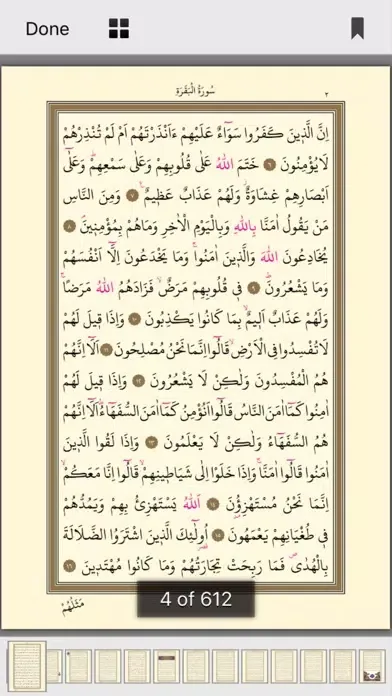 Done
سُورَةُ الْبَقَرَةِ ٢
اِنَّ الَّذٖينَ كَفَرُوا سَوَٓاءٌ عَلَيْهِمْ ءَاَنْذَرْتَهُمْ اَمْ لَمْ تُنْذِرْهُمْ
لَا يُؤْمِنُونَ ٦ خَتَمَ اللّٰهُ عَلٰى قُلُوبِهِمْ وَعَلٰى سَمْعِهِمْ وَعَلٰٓى
اَبْصَارِهِمْ غِشَاوَةٌ وَلَهُمْ عَذَابٌ عَظٖيمٌ ٧ وَمِنَ النَّاسِ
مَنْ يَقُولُ اٰمَنَّا بِاللّٰهِ وَبِالْيَوْمِ الْاٰخِرِ وَمَا هُمْ بِمُؤْمِنٖينَ ٨
يُخَادِعُونَ اللّٰهَ وَالَّذٖينَ اٰمَنُوا وَمَا يَخْدَعُونَ اِلَّٓا اَنْفُسَهُمْ
وَمَا يَشْعُرُونَ ٩ فٖى قُلُوبِهِمْ مَرَضٌ فَزَادَهُمُ اللّٰهُ مَرَضًا
وَلَهُمْ عَذَابٌ اَلٖيمٌ بِمَا كَانُوا يَكْذِبُونَ ١٠ وَاِذَا قٖيلَ لَهُمْ
لَا تُفْسِدُوا فِى الْاَرْضِ قَالُٓوا اِنَّمَا نَحْنُ مُصْلِحُونَ ١١ اَلَٓا اِنَّهُمْ
هُمُ الْمُفْسِدُونَ وَلٰكِنْ لَا يَشْعُرُونَ ١٢ وَاِذَا قٖيلَ لَهُمْ
اٰمِنُوا كَمَٓا اٰمَنَ النَّاسُ قَالُٓوا اَنُؤْمِنُ كَمَٓا اٰمَنَ السُّفَهَٓاءُ اَلَٓا اِنَّهُمْ
هُمُ السُّفَهَٓاءُ وَلٰكِنْ لَا يَعْلَمُونَ ١٣ وَاِذَا لَقُوا الَّذٖينَ
اٰمَنُوا قَالُٓوا اٰمَنَّا وَاِذَا خَلَوْا اِلٰى شَيَاطٖينِهِمْ قَالُٓوا اِنَّا مَعَكُمْ
اِنَّمَا نَحْنُ مُسْتَهْزِؤُنَ ١٤ اَللّٰهُ يَسْتَهْزِئُ بِهِمْ وَيَمُدُّهُمْ
فٖى طُغْيَانِهِمْ يَعْمَهُونَ ١٥ اُولٰٓئِكَ الَّذٖينَ اشْتَرَوُا الضَّلَالَةَ
بِالْهُدٰى فَمَا رَبِحَتْ تِجَارَتُهُمْ وَمَا كَانُوا مُهْتَدٖينَ ١٦
مَثَلُهُمْ
4 of 612